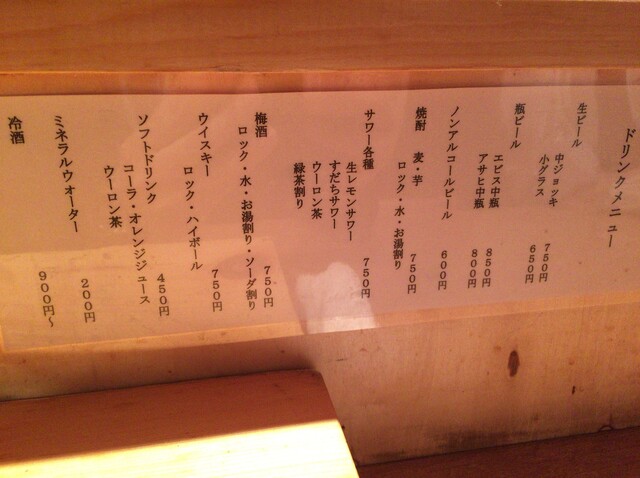 ドリンクメニュー
生ビール
中ジョッキ 750円
小グラス 650円
瓶ビール
エビス中瓶 850円
アサヒ中瓶 800円
ノンアルコールビール 600円
焼酎 麦・芋
ロック・水・お湯割り 750円
サワー各種 750円
生レモンサワー
すだちサワー
ウーロン茶
緑茶割り
梅酒 750円
ロック・水・お湯割り・ソーダ割り
ウイスキー
ロック・ハイボール 750円
ソフトドリンク 450円
コーラ・オレンジジュース
ウーロン茶
ミネラルウォーター 200円
冷酒 900円～